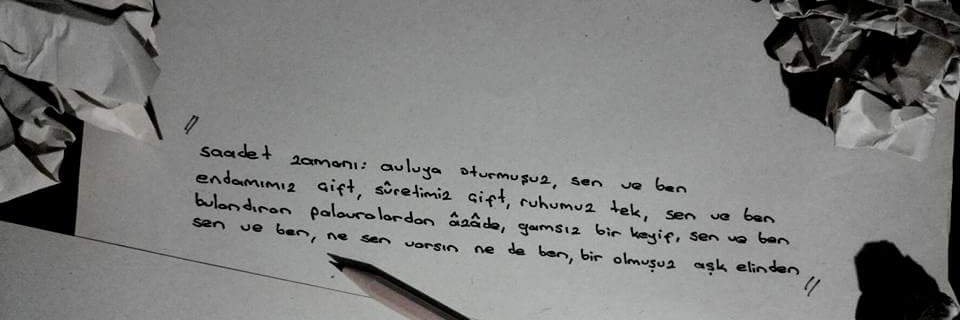 "
saadet zamanı: avluya oturmuşuz, sen ve ben
endamımız çift, sûretimiz çift, ruhumuz tek, sen ve ben
bulandıran palavralardan âzâde, gamsız bir keyif, sen ve ben
sen ve ben, ne sen varsın ne de ben, bir olmuşuz aşk elinden
"